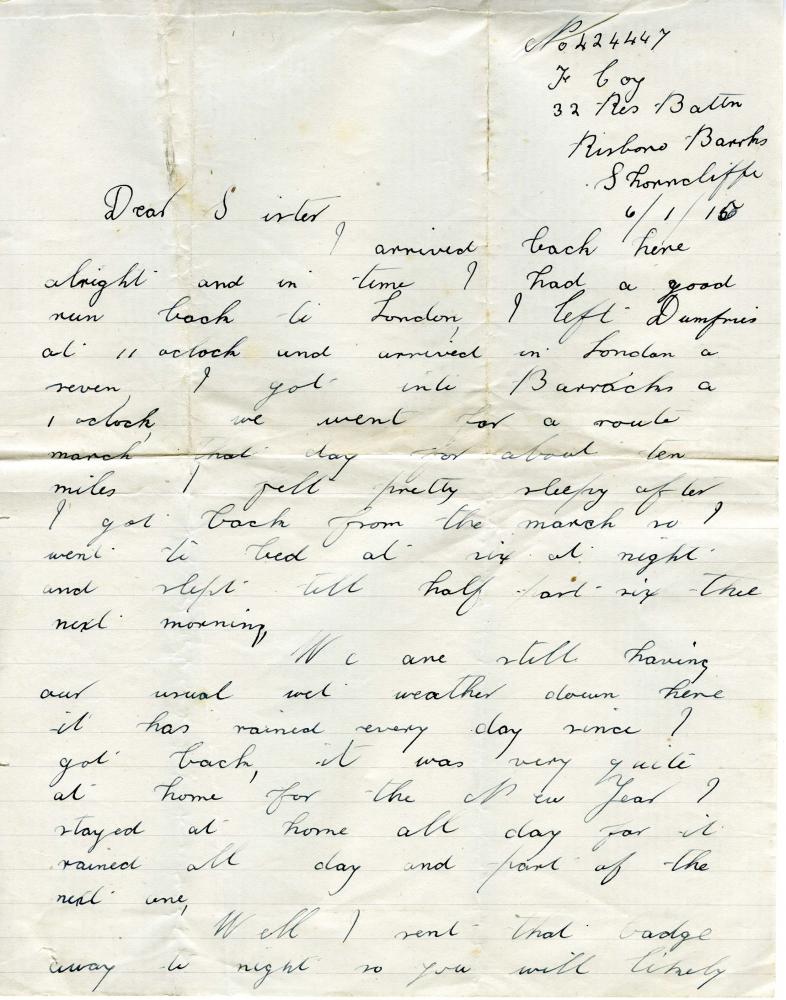 No 424447
F Coy
32 Res Battn
Risboro Barrks
Shorncliffe
6/1/16
Dear Sister
I arrived back here
alright and in time I had a good
run back to London, I left Dumfries
at 11 oclock and arrived in London a
seven, I got into Barracks a
1 oclock, we went for a route
march that day for about ten
miles I felt pretty sleepy after
I got back from the march so I
went to bed at six at night
and slept till half past six thee
next morning,
We are still having
our usual wet weather down here
it has rained every day since I
got back, it was very quite
at home for the New Year I
stayed at home all day for it
rained all day and part of the
next one,
Well I sent that badge
away to night so you will likely